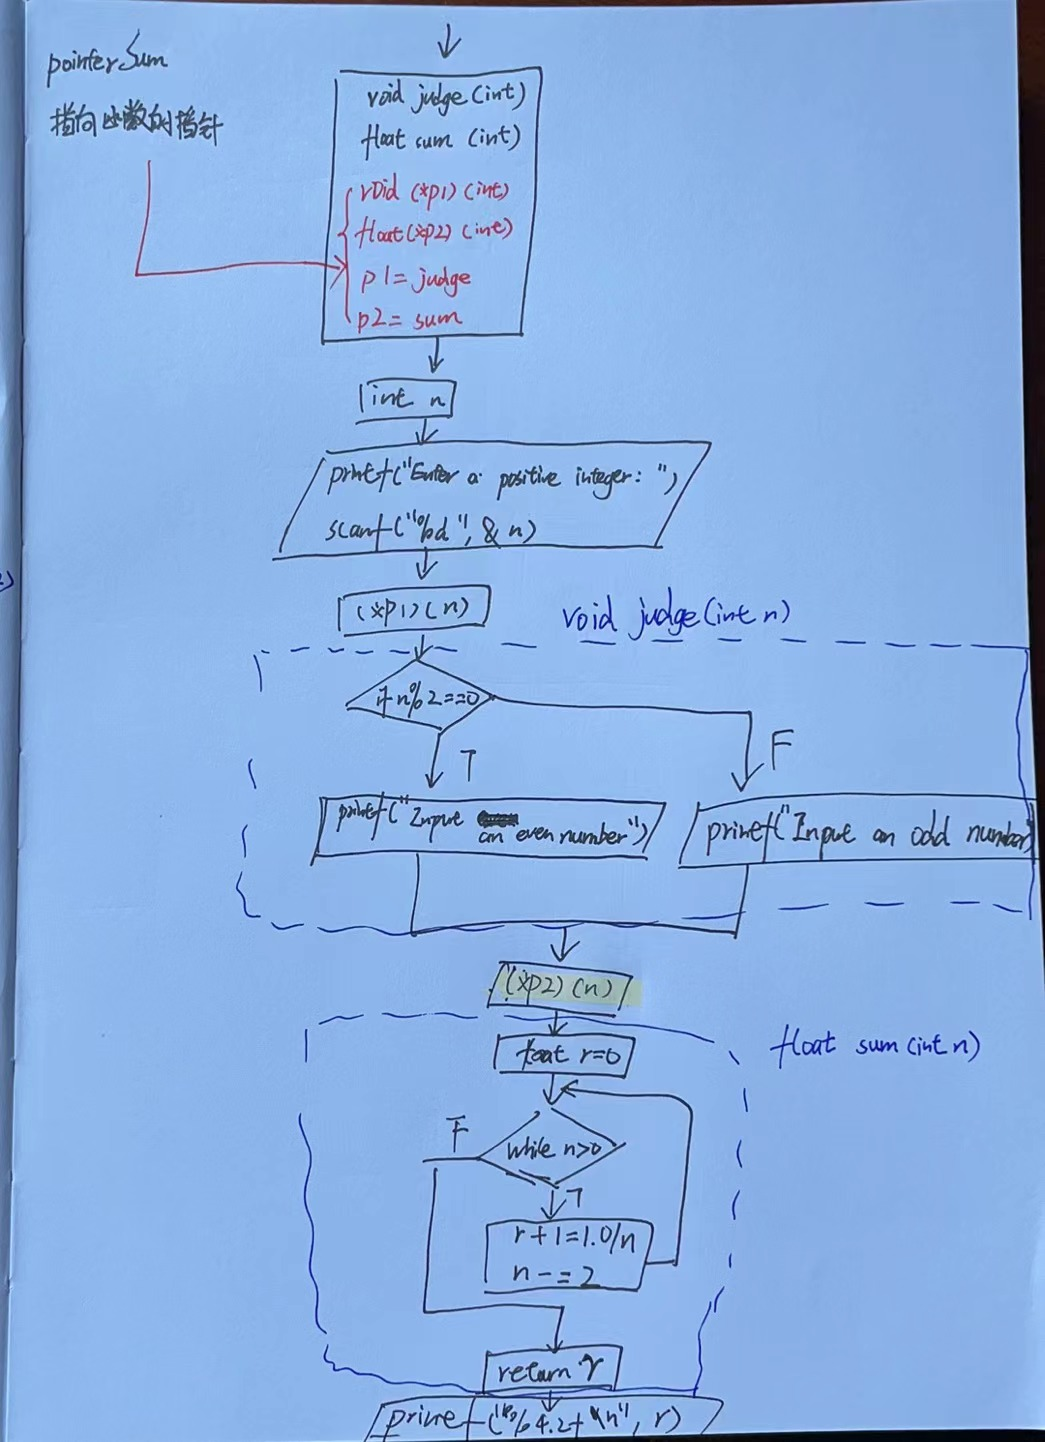 pointerSum
指向函数的指针
void judge(int)
float sum (int)
void (*p1)(int)
float(*p2)(int)
p1=judge
p2=sum
int n
printf("Enter a positive integer: ")
scanf("%d", & n)
(*p1)(n)
void judge(int n)
if n%2==0
T
F
printf("Input an even number")
printf("Input an odd number")
(*p2)(n)
float r=0
float sum(int n)
while n>0
F
T
r+1=1.0/n
n-=2
return r
printf("%4.2f\n", r)